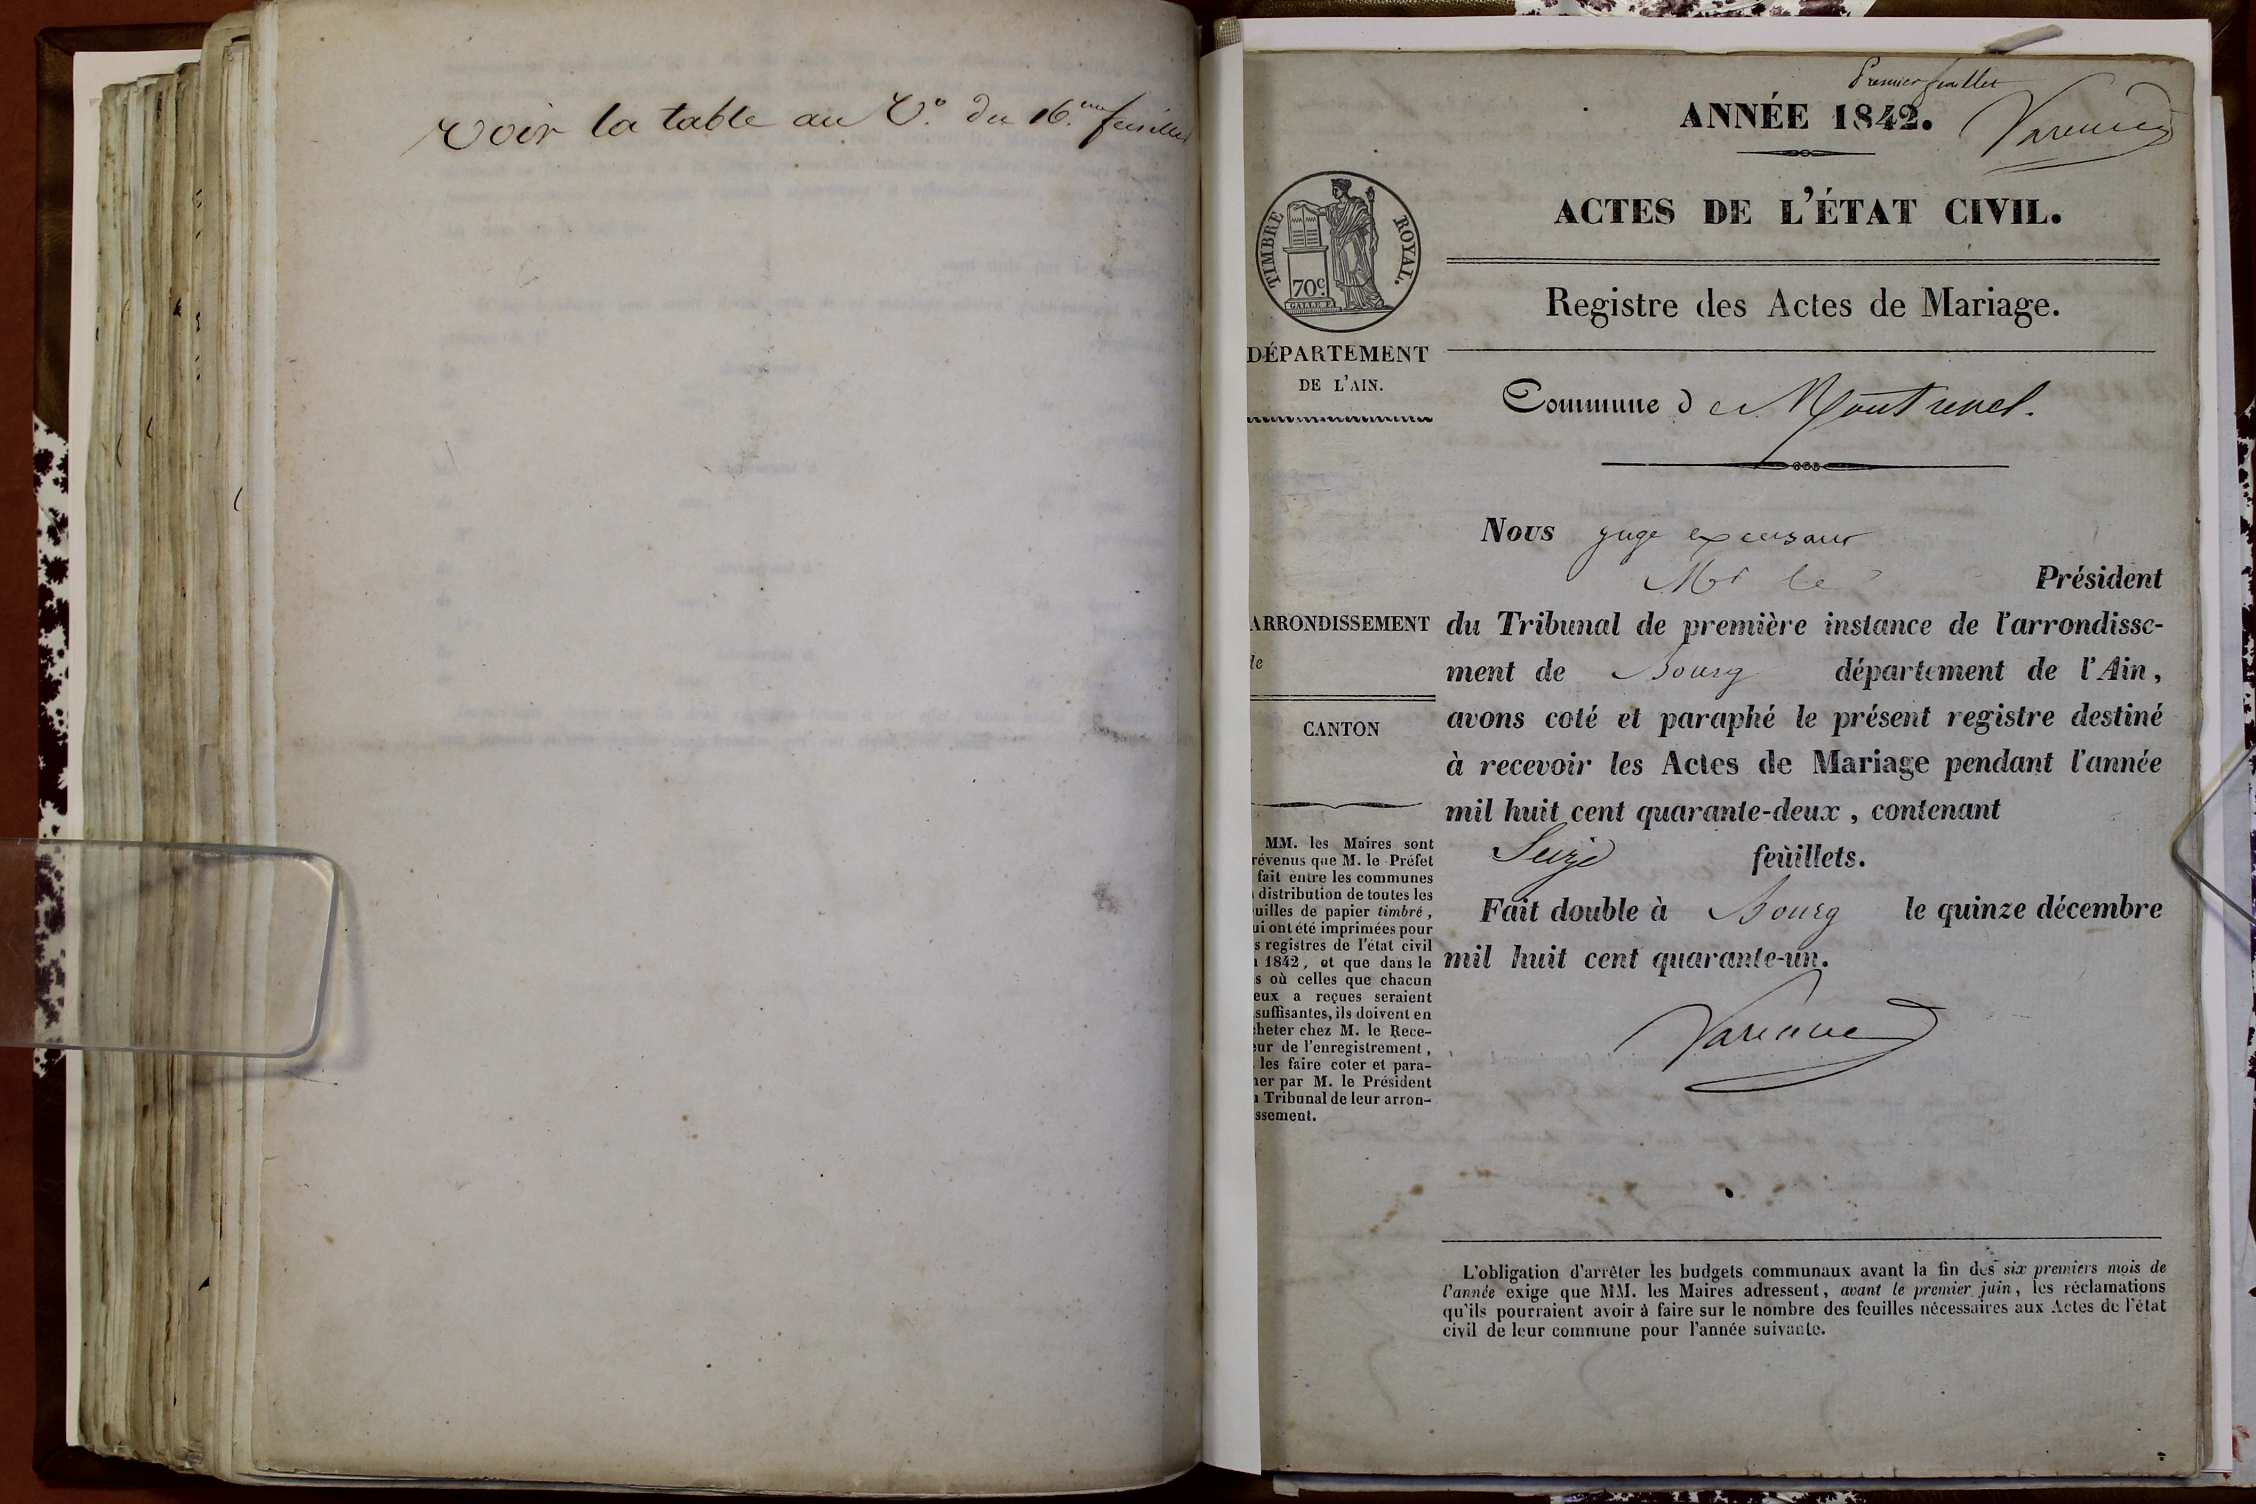 Voir la table au V.º du 16.eme feuillet
Premier feuillet
ANNÉE 1842.
ACTES DE L'ÉTAT CIVIL.
TIMBRE ROYAL.
70c.
Registre des Actes de Mariage.
DÉPARTEMENT
DE L'AIN.
Commune de Montrevel.
Nous juge
Mr le Président
ARRONDISSEMENT
du Tribunal de première instance de l'arrondisse-
ment de Bourg département de l'Ain,
CANTON
avons coté et paraphé le présent registre destiné
à recevoir les Actes de Mariage pendant l'année
mil huit cent quarante-deux, contenant
Seize feuillets.
Fait double à Bourg le quinze décembre
mil huit cent quarante-un.
MM. les Maires sont
révenus que M. le Préfet
fait entre les communes
distribution de toutes les
uilles de papier timbré,
ui ont été imprimées pour
s registres de l'état civil
1842, et que dans le
s où celles que chacun
eux a reçues seraient
suffisantes, ils doivent en
cheter chez M. le Rece-
eur de l'enregistrement,
les faire coter et para-
her par M. le Président
Tribunal de leur arron-
ssement.
L'obligation d'arrêter les budgets communaux avant la fin des six premiers mois de
l'année exige que MM. les Maires adressent, avant le premier juin, les réclamations
qu'ils pourraient avoir à faire sur le nombre des feuilles nécessaires aux Actes de l'état
civil de leur commune pour l'année suivante.